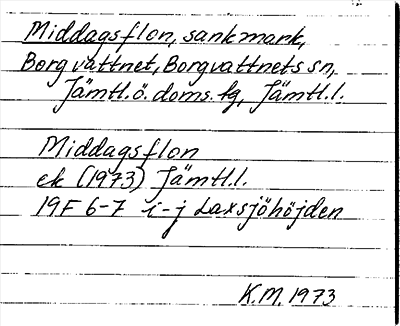 Middagsflon, sankmark,
Borgvattnet, Borgvattnets sn,
Jämtl.ö. doms. tg, Jämtl.l.
Middagsflon
ek (1973) Jämtl.l.
19F 6-7 i-j Laxsjöhöjden
K.M. 1973